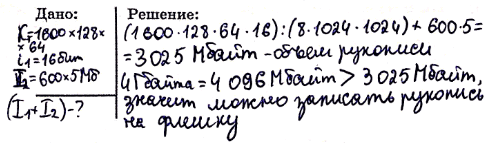 Дано:
K=1600×128×
×64
i₁=16бит
I₂=600×5Мб
(I₁+I₂)-?
Решение:
(1600·128·64·16):(8·1024·1024)+600·5=
=3025 Мбайт -объем рукописи
4Гбайта=4 096Мбайт> 3025Мбайт,
значит можно записать рукопись
на флешку